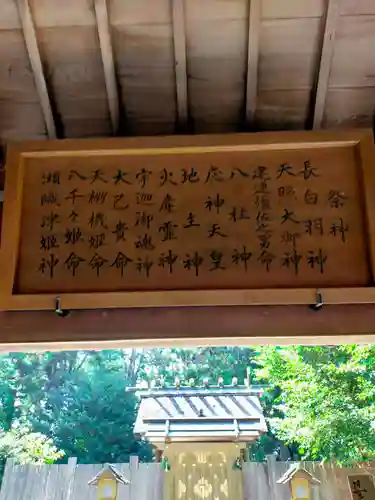 祭神
長白羽神
天照大御神
建速須佐之男命
八柱神
応神天皇
地主神
火産霊神
宇迦御魂神
大己貴命
天棚機姫命
八千々姫命
瀬織津姫神